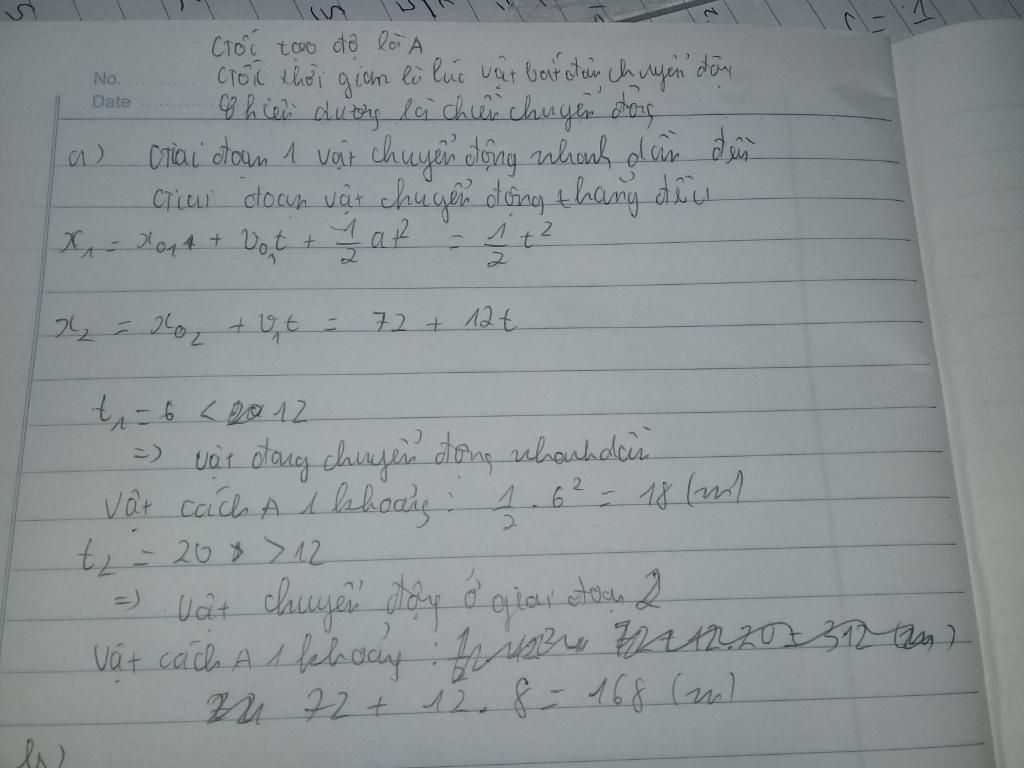 Gốc tọa độ là A
No.
Gốc thời gian là lúc vật bắt đầu chuyển động
Date
Chiều dương là chiều chuyển động
a) Giai đoạn 1 vật chuyển động nhanh dần đều
Giai đoạn vật chuyển động thẳng đều
x₁ = x₀₁ + v₀₁t + 1/2 at² = 1/2 t²
x₂ = x₀₂ + v₁t = 72 + 12t
t₁ = 6 < 12
=> vật đang chuyển động nhanh dần
Vật cách A 1 khoảng : 1/2 . 6² = 18 (m)
t₂ = 20 > 12
=> vật chuyển động ở giai đoạn 2
Vật cách A 1 khoảng : 72 + 12.20 = 312 (m)
72 + 12 . 8 = 168 (m)
b)